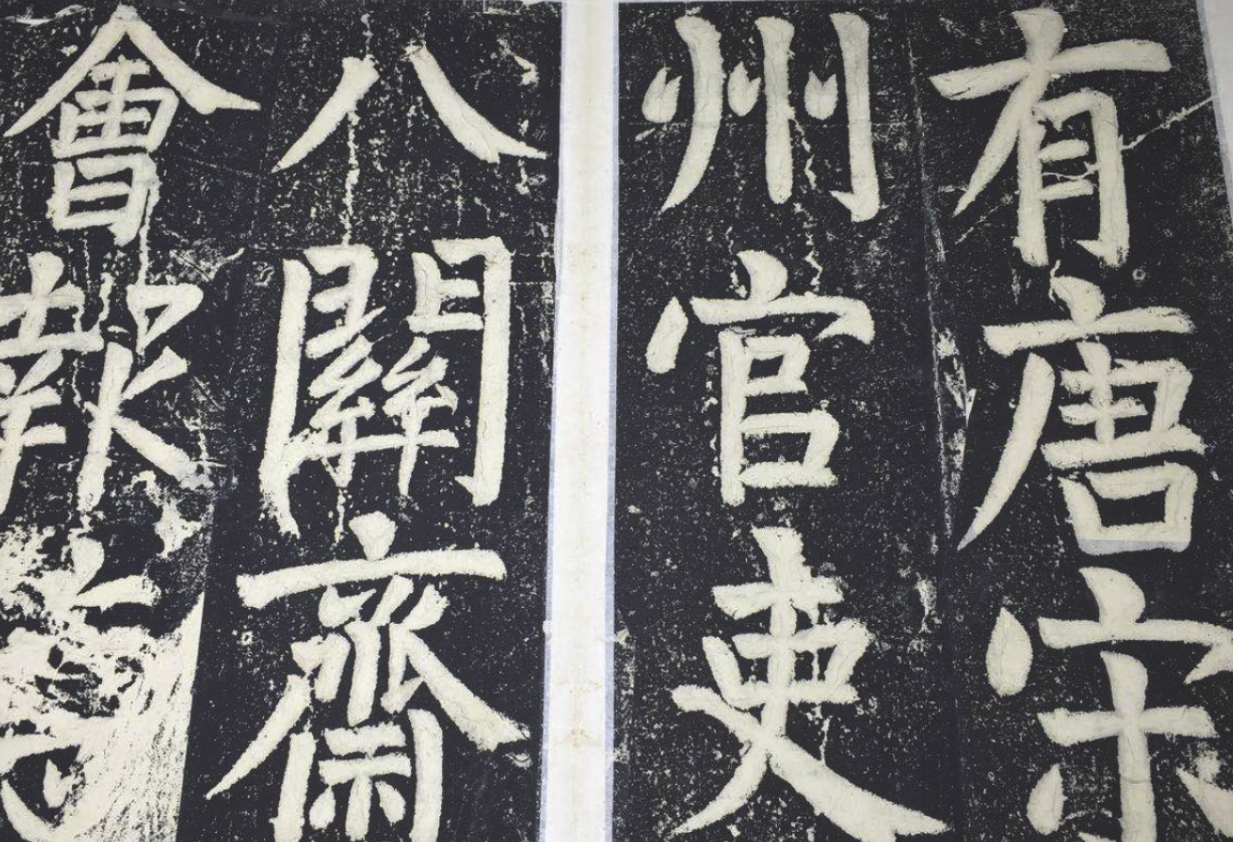 有唐宋
州官吏
八關齋
會報